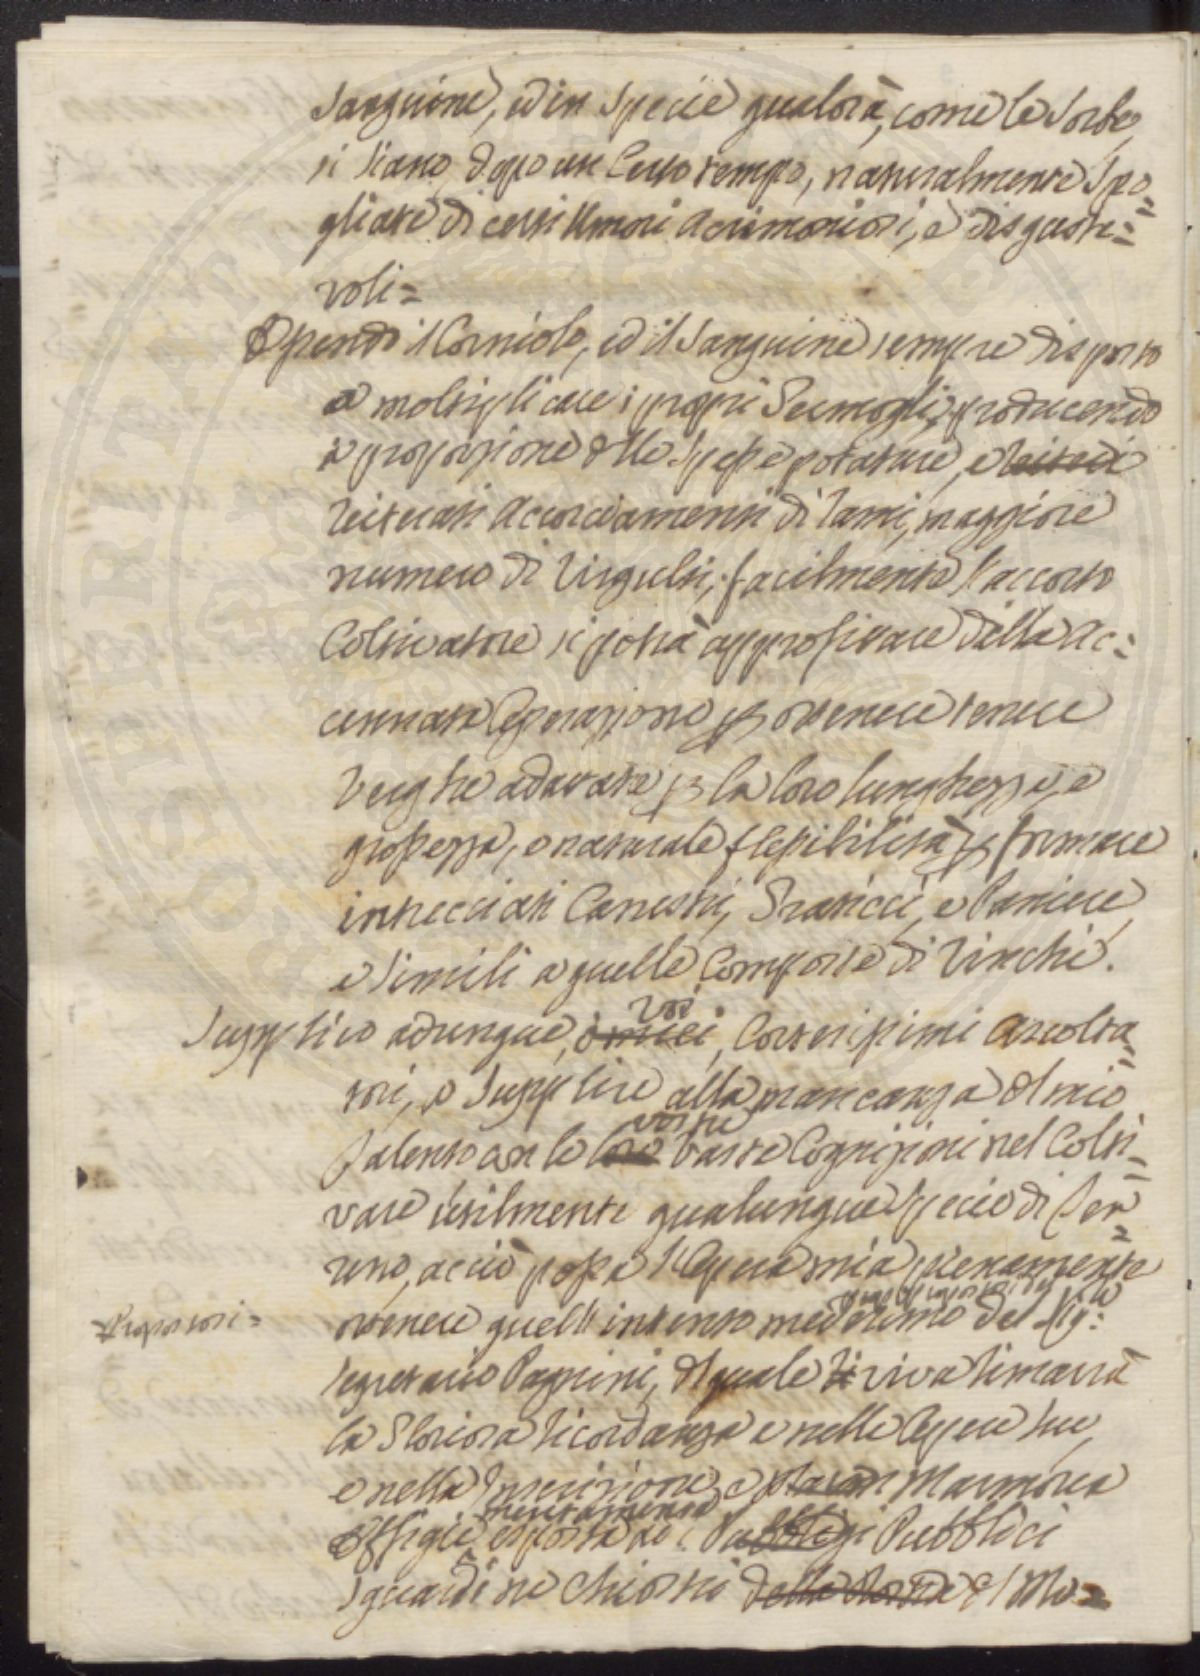 Sanguine, ed in Specie qualora, come le Sorbe,
si siano, dopo un certo tempo, naturalmente Spo=
gliate di certi Umori acrimoniosi, e disguste=
voli=
Essendo il Corniolo, ed il Sanguine sempre disposto
a moltiplicare i propri Germogli, producendo
a proporzione delle Spesse potature, e
reiterati accorciamenti di rami, maggiore
numero di Virgulti; facilmente l'accorto
Coltivatore si potrà approfittare della ac=
cennata Operazione per ottenere tenere
Verghe adattate per la loro lunghezza, e
grossezza, e naturale flessibilità per formare
intrecciati Canestri, Graticci, e Paniere,
e Simili a quelle Composte di Vinchi.
Supplico adunque, Voi, Cortesissimi Ascolta=
tori, a Supplire alla mancanza del mio
Talento con le vostre vaste Cognizioni nel Colti=
vare utilmente qualunque Specie di Ter=
reno, acciò possa l'Opera mia pienamente
ottenere quell'intento medesimo del Sig:re
Propostosi=
Segretario Pagnini, del quale viva rimarrà
la Gloriosa ricordanza e nelle Opere sue,
e nella Inscrizione, e Marmorea
Effigie, esposta ai Pubblici
Sguardi ne Chiostri del Mo=